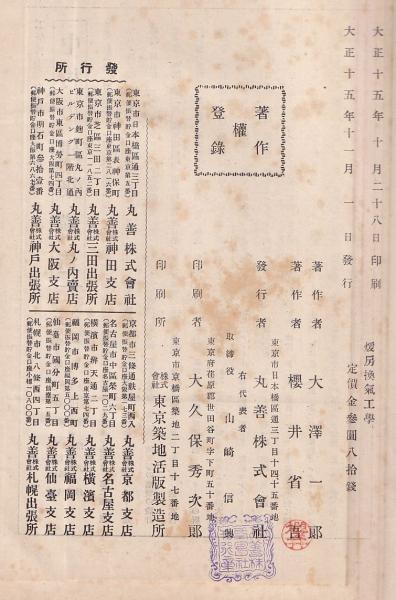 大正十五年十月二十八日印刷
大正十五年十月一日發行
煖房換氣工學
定價金參圓八拾錢
著作權登錄
著作者 大澤一郎
著作者 櫻井省吾
東京市日本橋區通三丁目十四十五番地
發行者 丸善株式會社
右代表者
取締役 山崎信興
東京府荏原郡世田谷町字下町五十番地
印刷者 大久保秀次郎
東京市京橋區築地二丁目十七番地
印刷所 株式會社 東京築地活版製造所
發行所
東京市日本橋區通三丁目 丸善株式會社
東京市神田區表神保町 丸善株式會社神田支店
東京市芝區三田二丁目 丸善株式會社三田出張所
東京市麴町區丸ノ內ビルデング一階北通 丸善株式會社丸ノ內賣店
大阪市東區博勞町四丁目 丸善株式會社大阪支店
神戶市明石町參拾壹番 丸善株式會社神戶出張所
京都市三條通麩屋町西入 丸善株式會社京都支店
名古屋市中區榮町六丁目 丸善株式會社名古屋支店
橫濱市辨天通二丁目 丸善株式會社橫濱支店
福岡市博多上西町 丸善株式會社福岡支店
仙臺市國分町五丁目 丸善株式會社仙臺支店
札幌市北八條西四丁目 丸善株式會社札幌出張所